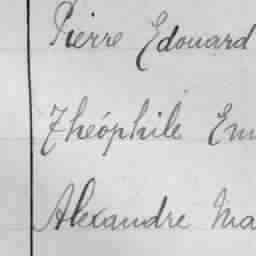 Pierre Edouard
Théophile Em
Alexandre Ma